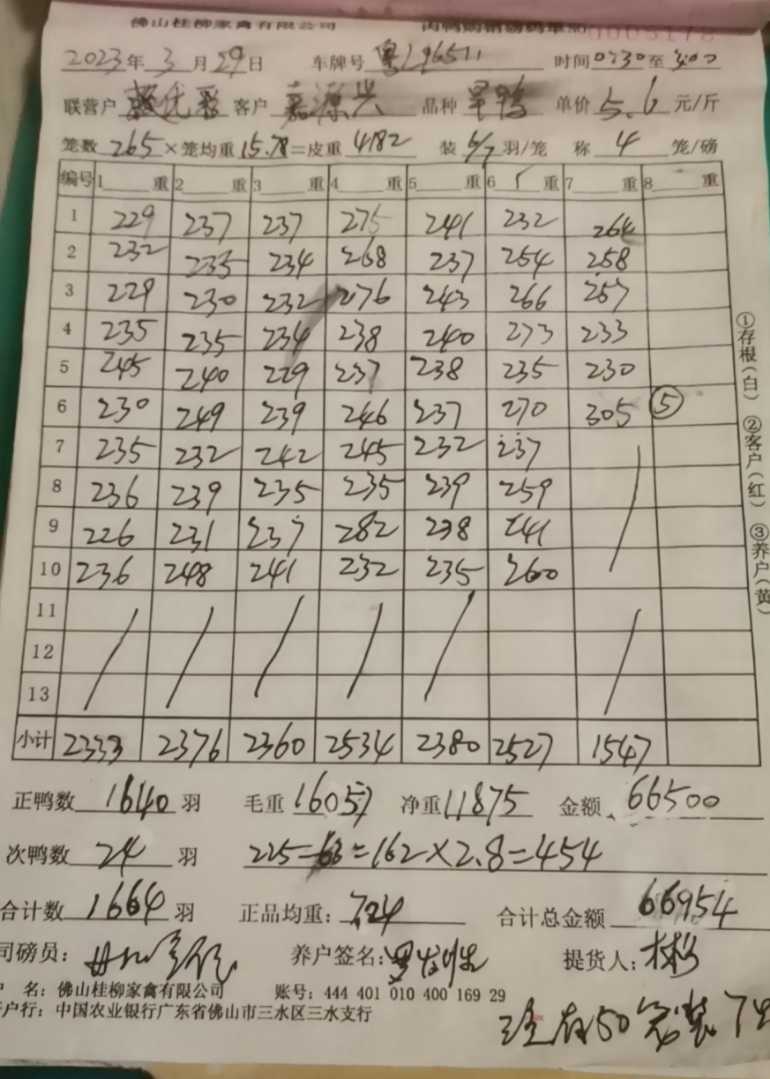 佛山桂柳家禽有限公司
2023年3月29日 车牌号 粤L9651 时间 0:30至3:00
联营户 客户 嘉源兴 品种 旱鸭 单价 5.6 元/斤
笼数 265×笼均重15.78=皮重 4182 装 6/7 羽/笼 称 4 笼/磅
编号 1 重 2 重 3 重 4 重 5 重 6 重 7 重 8 重
1 229 237 237 275 241 232 264
2 232 235 234 268 237 254 258
3 229 230 232 276 243 266 257
4 235 235 234 238 240 273 233
5 245 240 229 237 238 235 230
6 230 249 239 246 237 270 305 ⑤
7 235 232 242 245 232 237
8 236 239 235 235 239 259
9 226 231 237 282 238 241
10 236 248 241 232 235 260
11
12
13
小计 2333 2376 2360 2534 2380 2527 1547
正鸭数 1640 羽 毛重 16057 净重 11875 金额 66500
次鸭数 24 羽 225-63=162×2.8=454
合计数 1664 羽 正品均重: 7.24 合计总金额 66954
司磅员: 养户签名: 提货人: 林彬
户 名: 佛山桂柳家禽有限公司 账号: 444 401 010 400 169 29
开户行: 中国农业银行广东省佛山市三水区三水支行
50 装 7
①存根(白) ②客户(红) ③养户(黄)